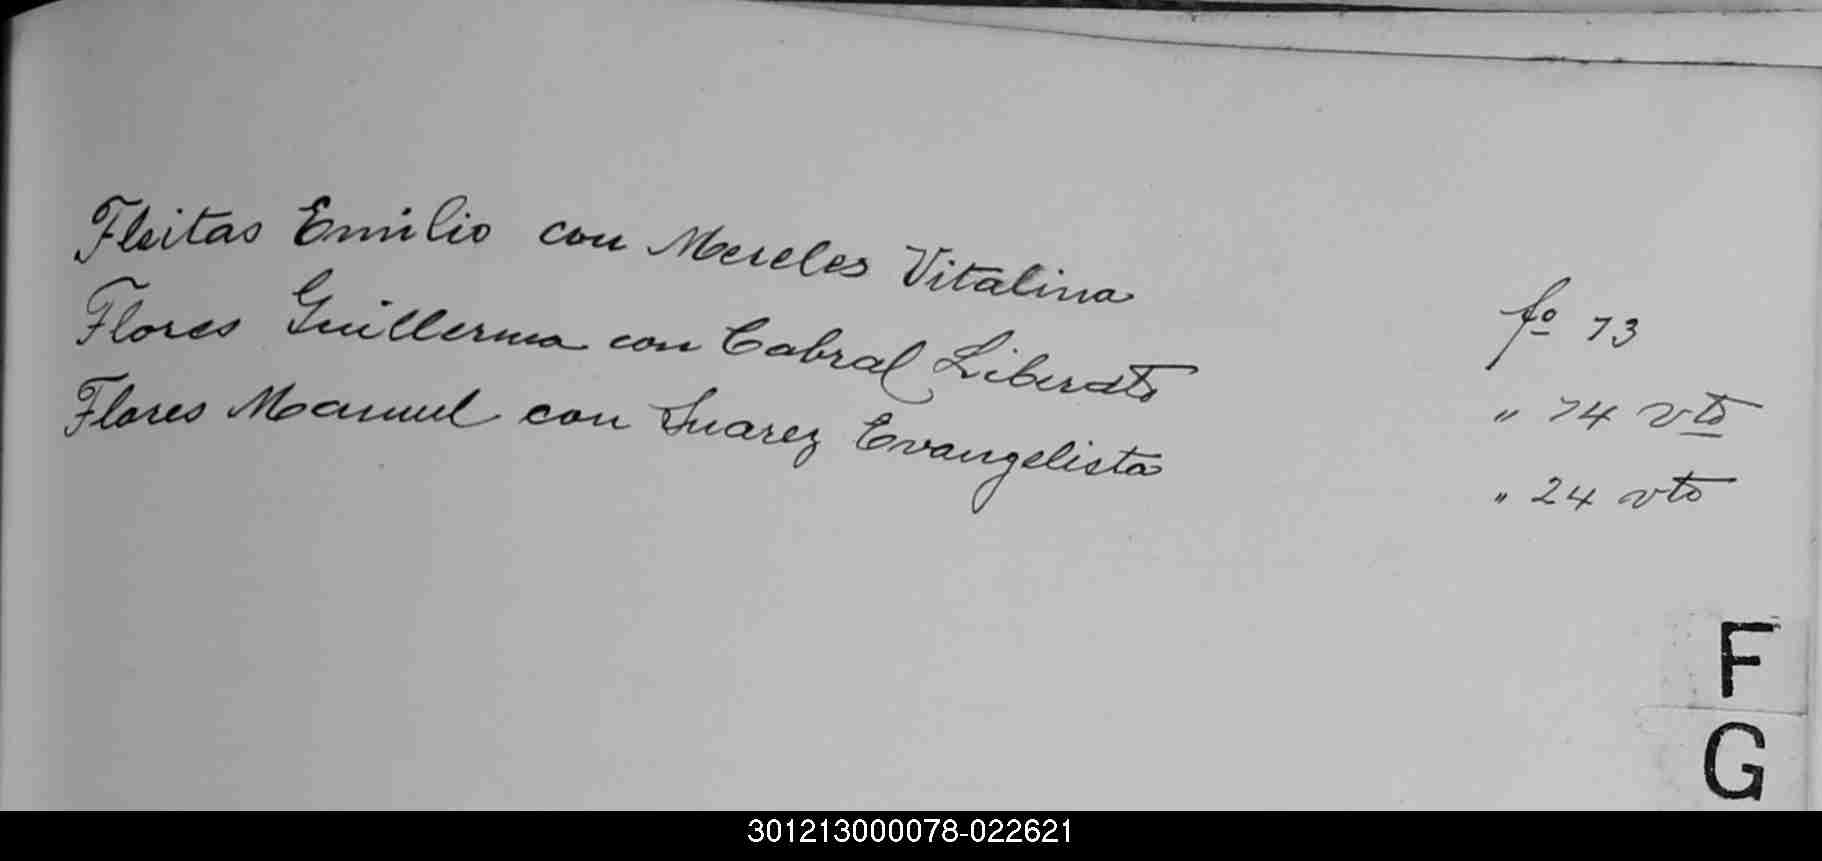 Fleitas Emilio con Mereles Vitalina fº 73
Flores Guillerma con Cabral Liberato " 74 vto
Flores Manuel con Suarez Evangelista " 24 vto
F
G
301213000078-022621